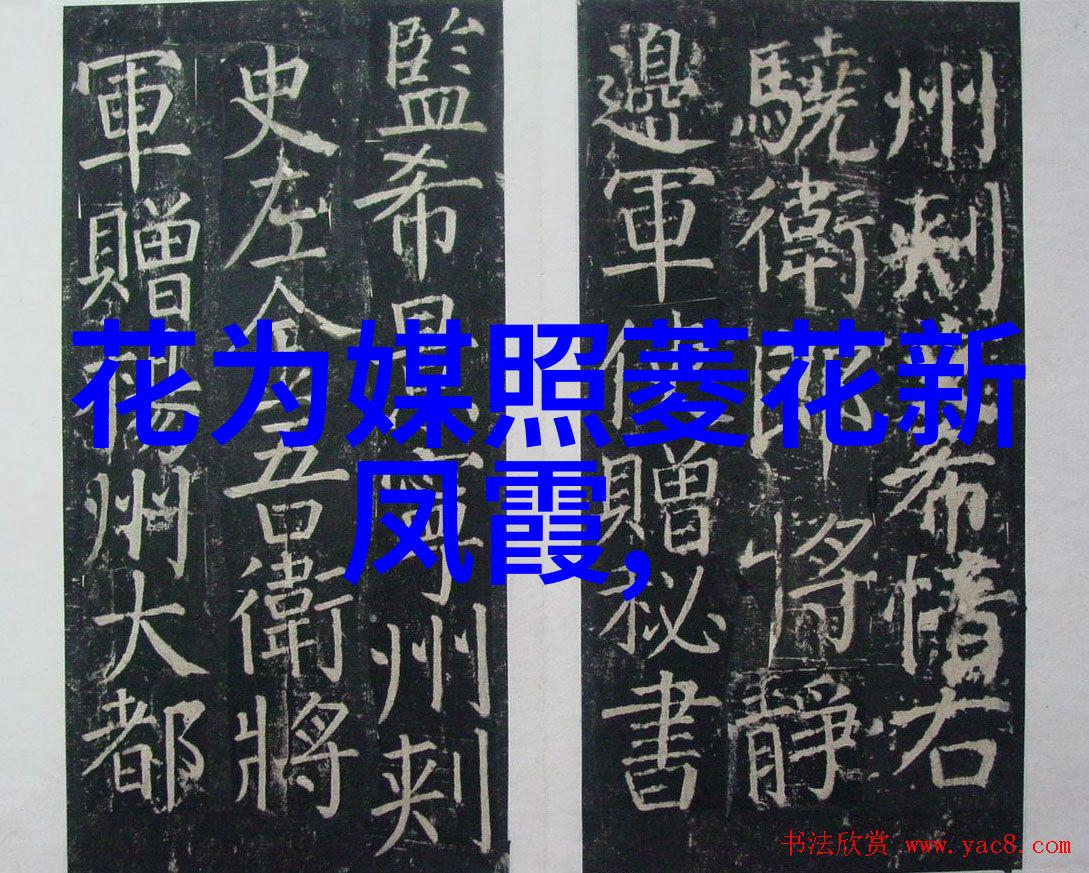 花为媒照菱花新
凤霞,
州刾希右
驍衛郎將靜
邊軍使贈秘書
監希景寧州刾
史左金吾衛將
軍贈揚州大都
书法欣赏 www.yac8.com